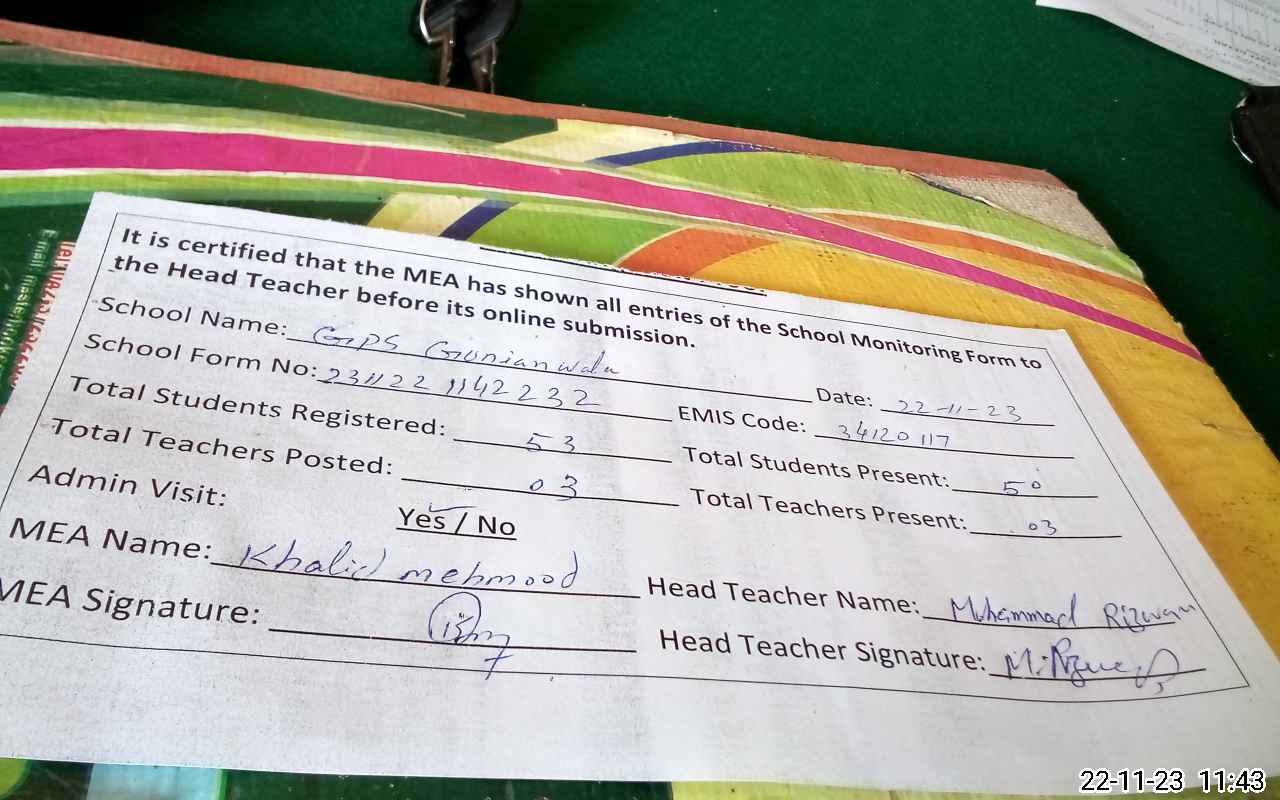 It is certified that the MEA has shown all entries of the School Monitoring Form to
the Head Teacher before its online submission.
School Name: GPS Gunianwala
Date: 22-11-23
School Form No: 231122 1142232
EMIS Code: 34120117
Total Students Registered: 53
Total Students Present: 50
Total Teachers Posted: 03
Total Teachers Present: 03
Admin Visit: Yes / No
MEA Name: Khalid mehmood
Head Teacher Name: Muhammad Rizwan
MEA Signature:
Head Teacher Signature: M.Rizwan
22-11-23 11:43